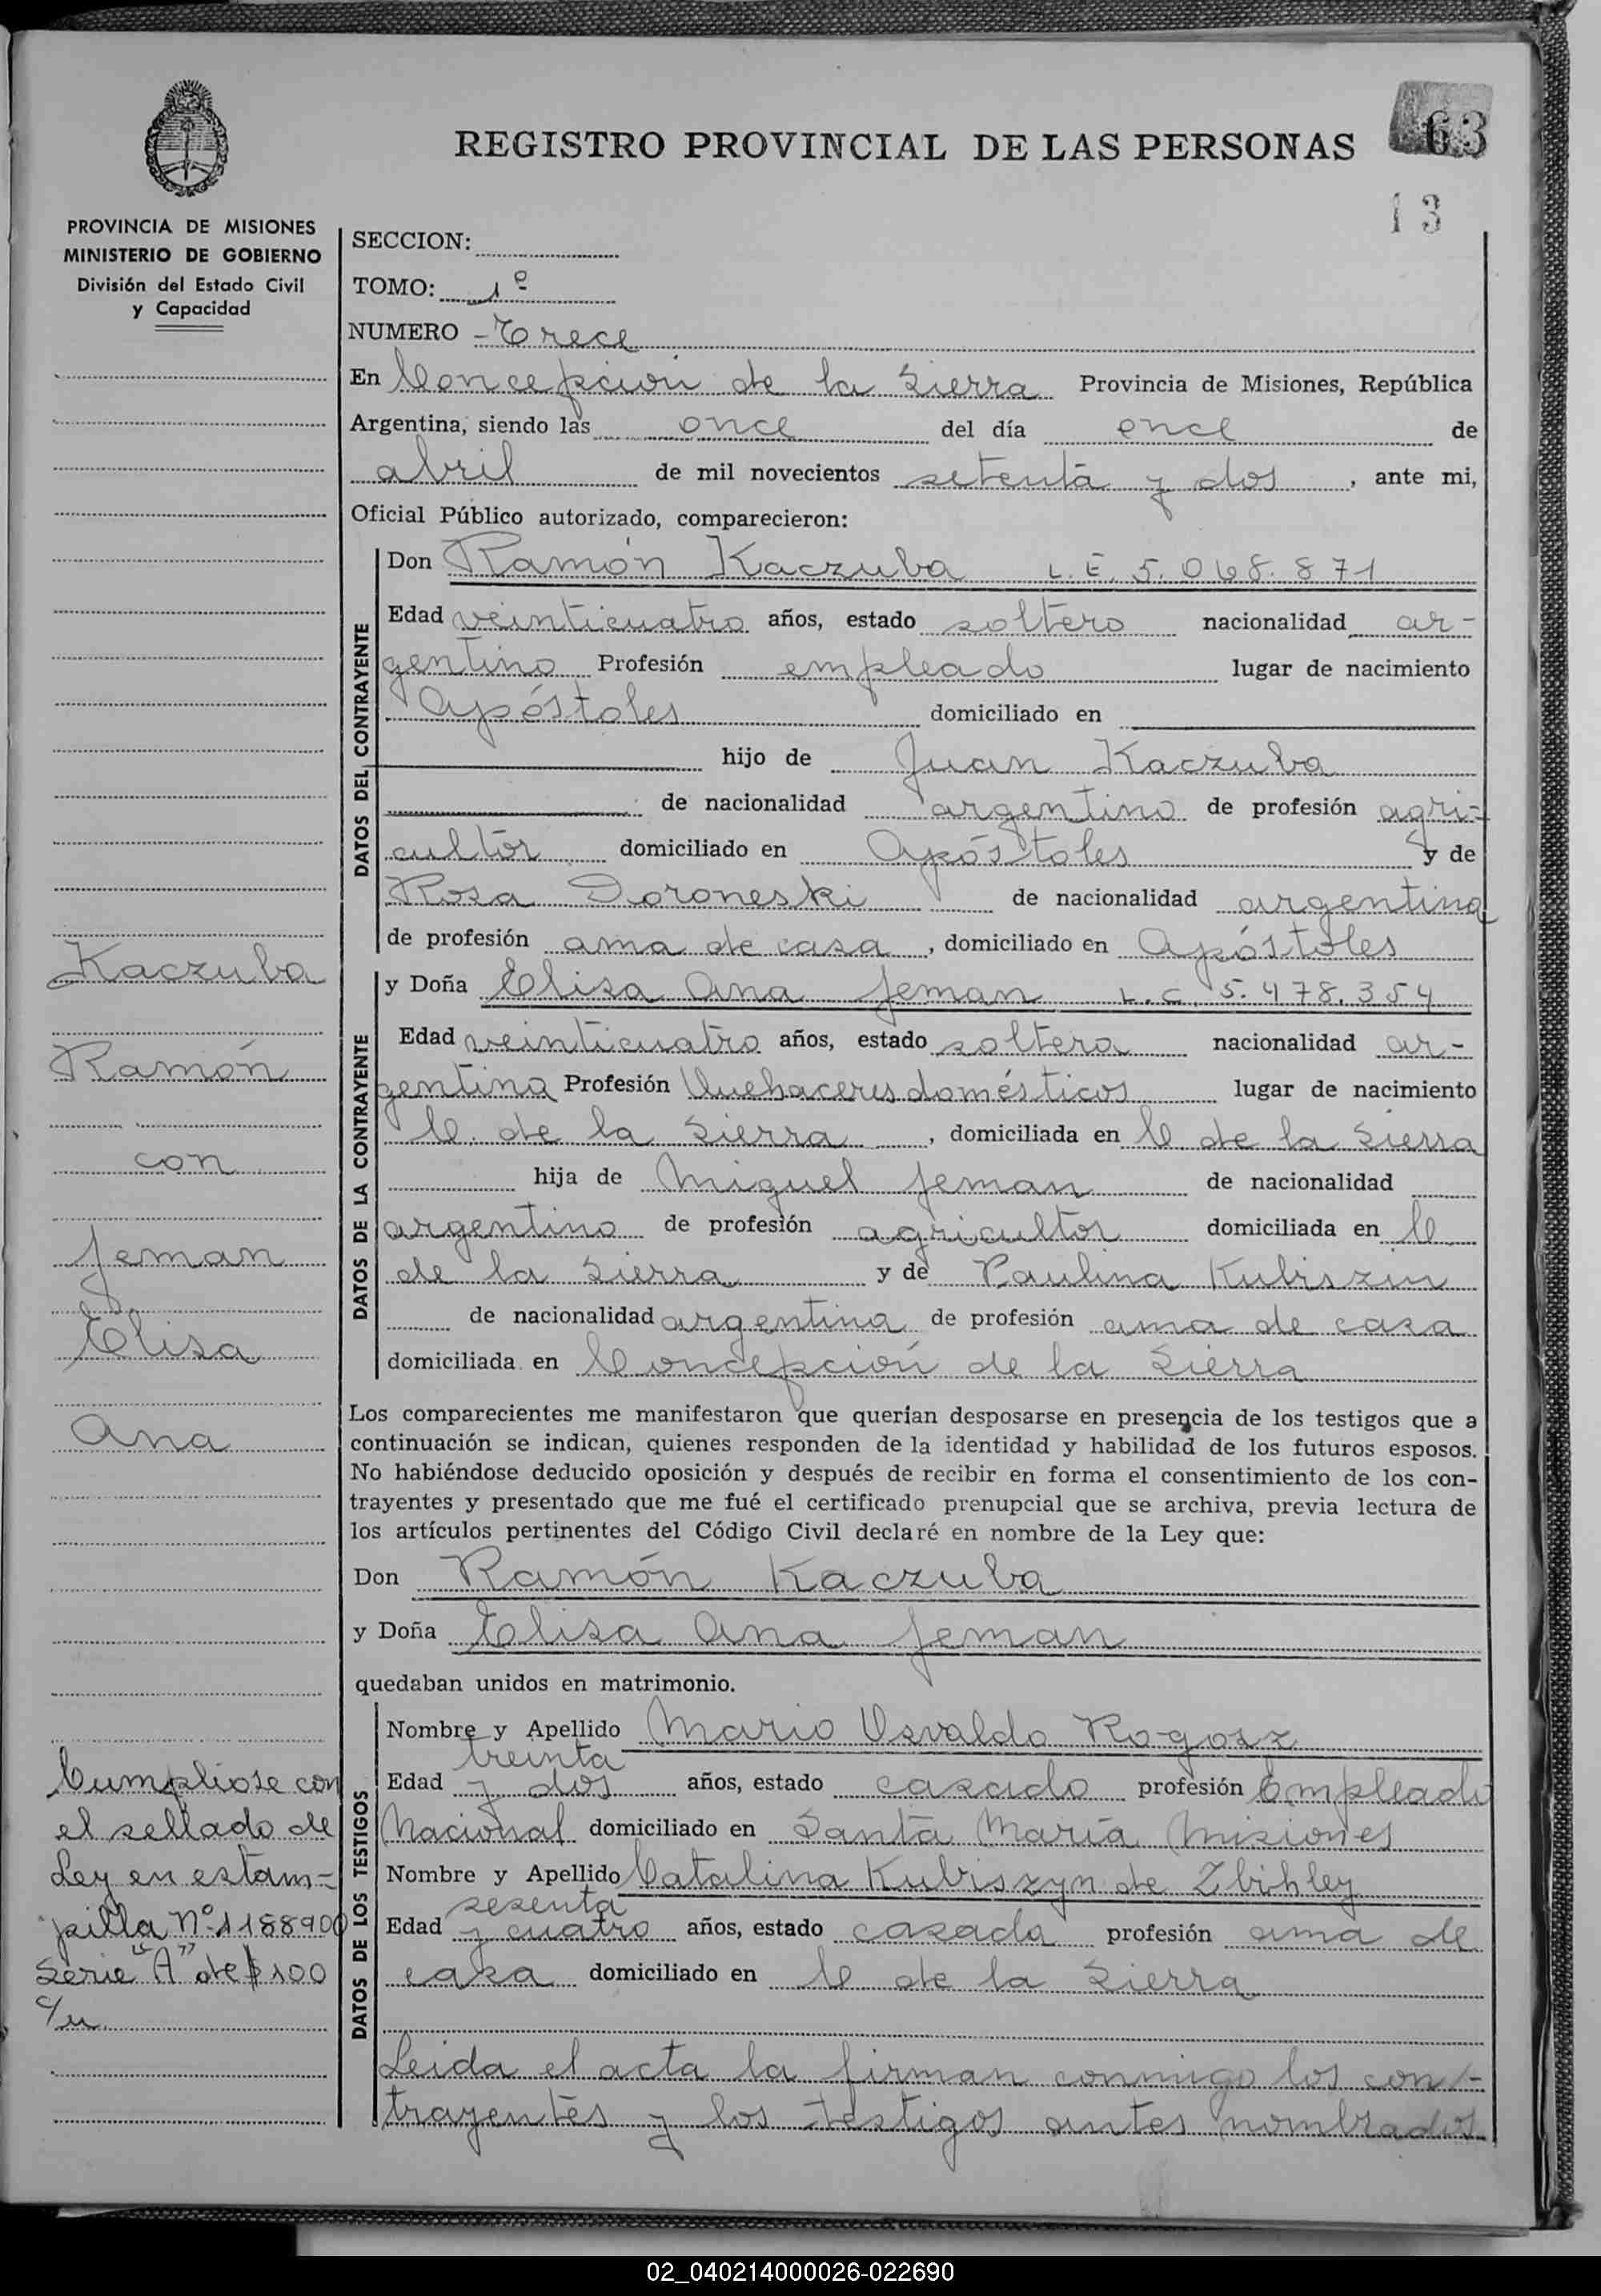 REGISTRO PROVINCIAL DE LAS PERSONAS
63
13
PROVINCIA DE MISIONES
MINISTERIO DE GOBIERNO
División del Estado Civil
y Capacidad
SECCION:
TOMO: 1º
NUMERO - Trece
En Concepción de la Sierra Provincia de Misiones, República
Argentina, siendo las once del día once de
abril de mil novecientos setenta y dos , ante mi,
Oficial Público autorizado, comparecieron:
DATOS DEL CONTRAYENTE
Don Ramón Kaczuba L.E. 5.068.871
Edad veinticuatro años, estado soltero nacionalidad ar-
gentino Profesión empleado lugar de nacimiento
Apóstoles domiciliado en
hijo de Juan Kaczuba
de nacionalidad argentino de profesión agri-
cultor domiciliado en Apóstoles y de
Rosa Doroneski de nacionalidad argentina
de profesión ama de casa , domiciliado en Apóstoles
DATOS DE LA CONTRAYENTE
y Doña Elisa Ana Jeman L.C. 5.478.354
Edad veinticuatro años, estado soltera nacionalidad ar-
gentina Profesión Quehaceres domésticos lugar de nacimiento
C. de la Sierra , domiciliada en C de la Sierra
hija de Miguel Jeman de nacionalidad
argentino de profesión agricultor domiciliada en C
de la Sierra y de Paulina Kubiszin
de nacionalidad argentina de profesión ama de casa
domiciliada en Concepción de la Sierra
Los comparecientes me manifestaron que querían desposarse en presencia de los testigos que a
continuación se indican, quienes responden de la identidad y habilidad de los futuros esposos.
No habiéndose deducido oposición y después de recibir en forma el consentimiento de los con-
trayentes y presentado que me fué el certificado prenupcial que se archiva, previa lectura de
los artículos pertinentes del Código Civil declaré en nombre de la Ley que:
Don Ramón Kaczuba
y Doña Elisa Ana Jeman
quedaban unidos en matrimonio.
DATOS DE LOS TESTIGOS
Nombre y Apellido Mario Osvaldo Rogosz
treinta
Edad y dos años, estado casado profesión Empleado
Nacional domiciliado en Santa María Misiones
Nombre y Apellido Catalina Kubiszyn de Zbihley
sesenta
Edad y cuatro años, estado casada profesión ama de
casa domiciliado en C de la Sierra
Leida el acta la firman conmigo los con-
trayentes y los testigos antes nombrados
Kaczuba
Ramón
con
Jeman
Elisa
Ana
Cumpliose con
el sellado de
Ley en estam-
pilla Nº 1188900
Serie "A" de $100
c/u.
02_040214000026-022690